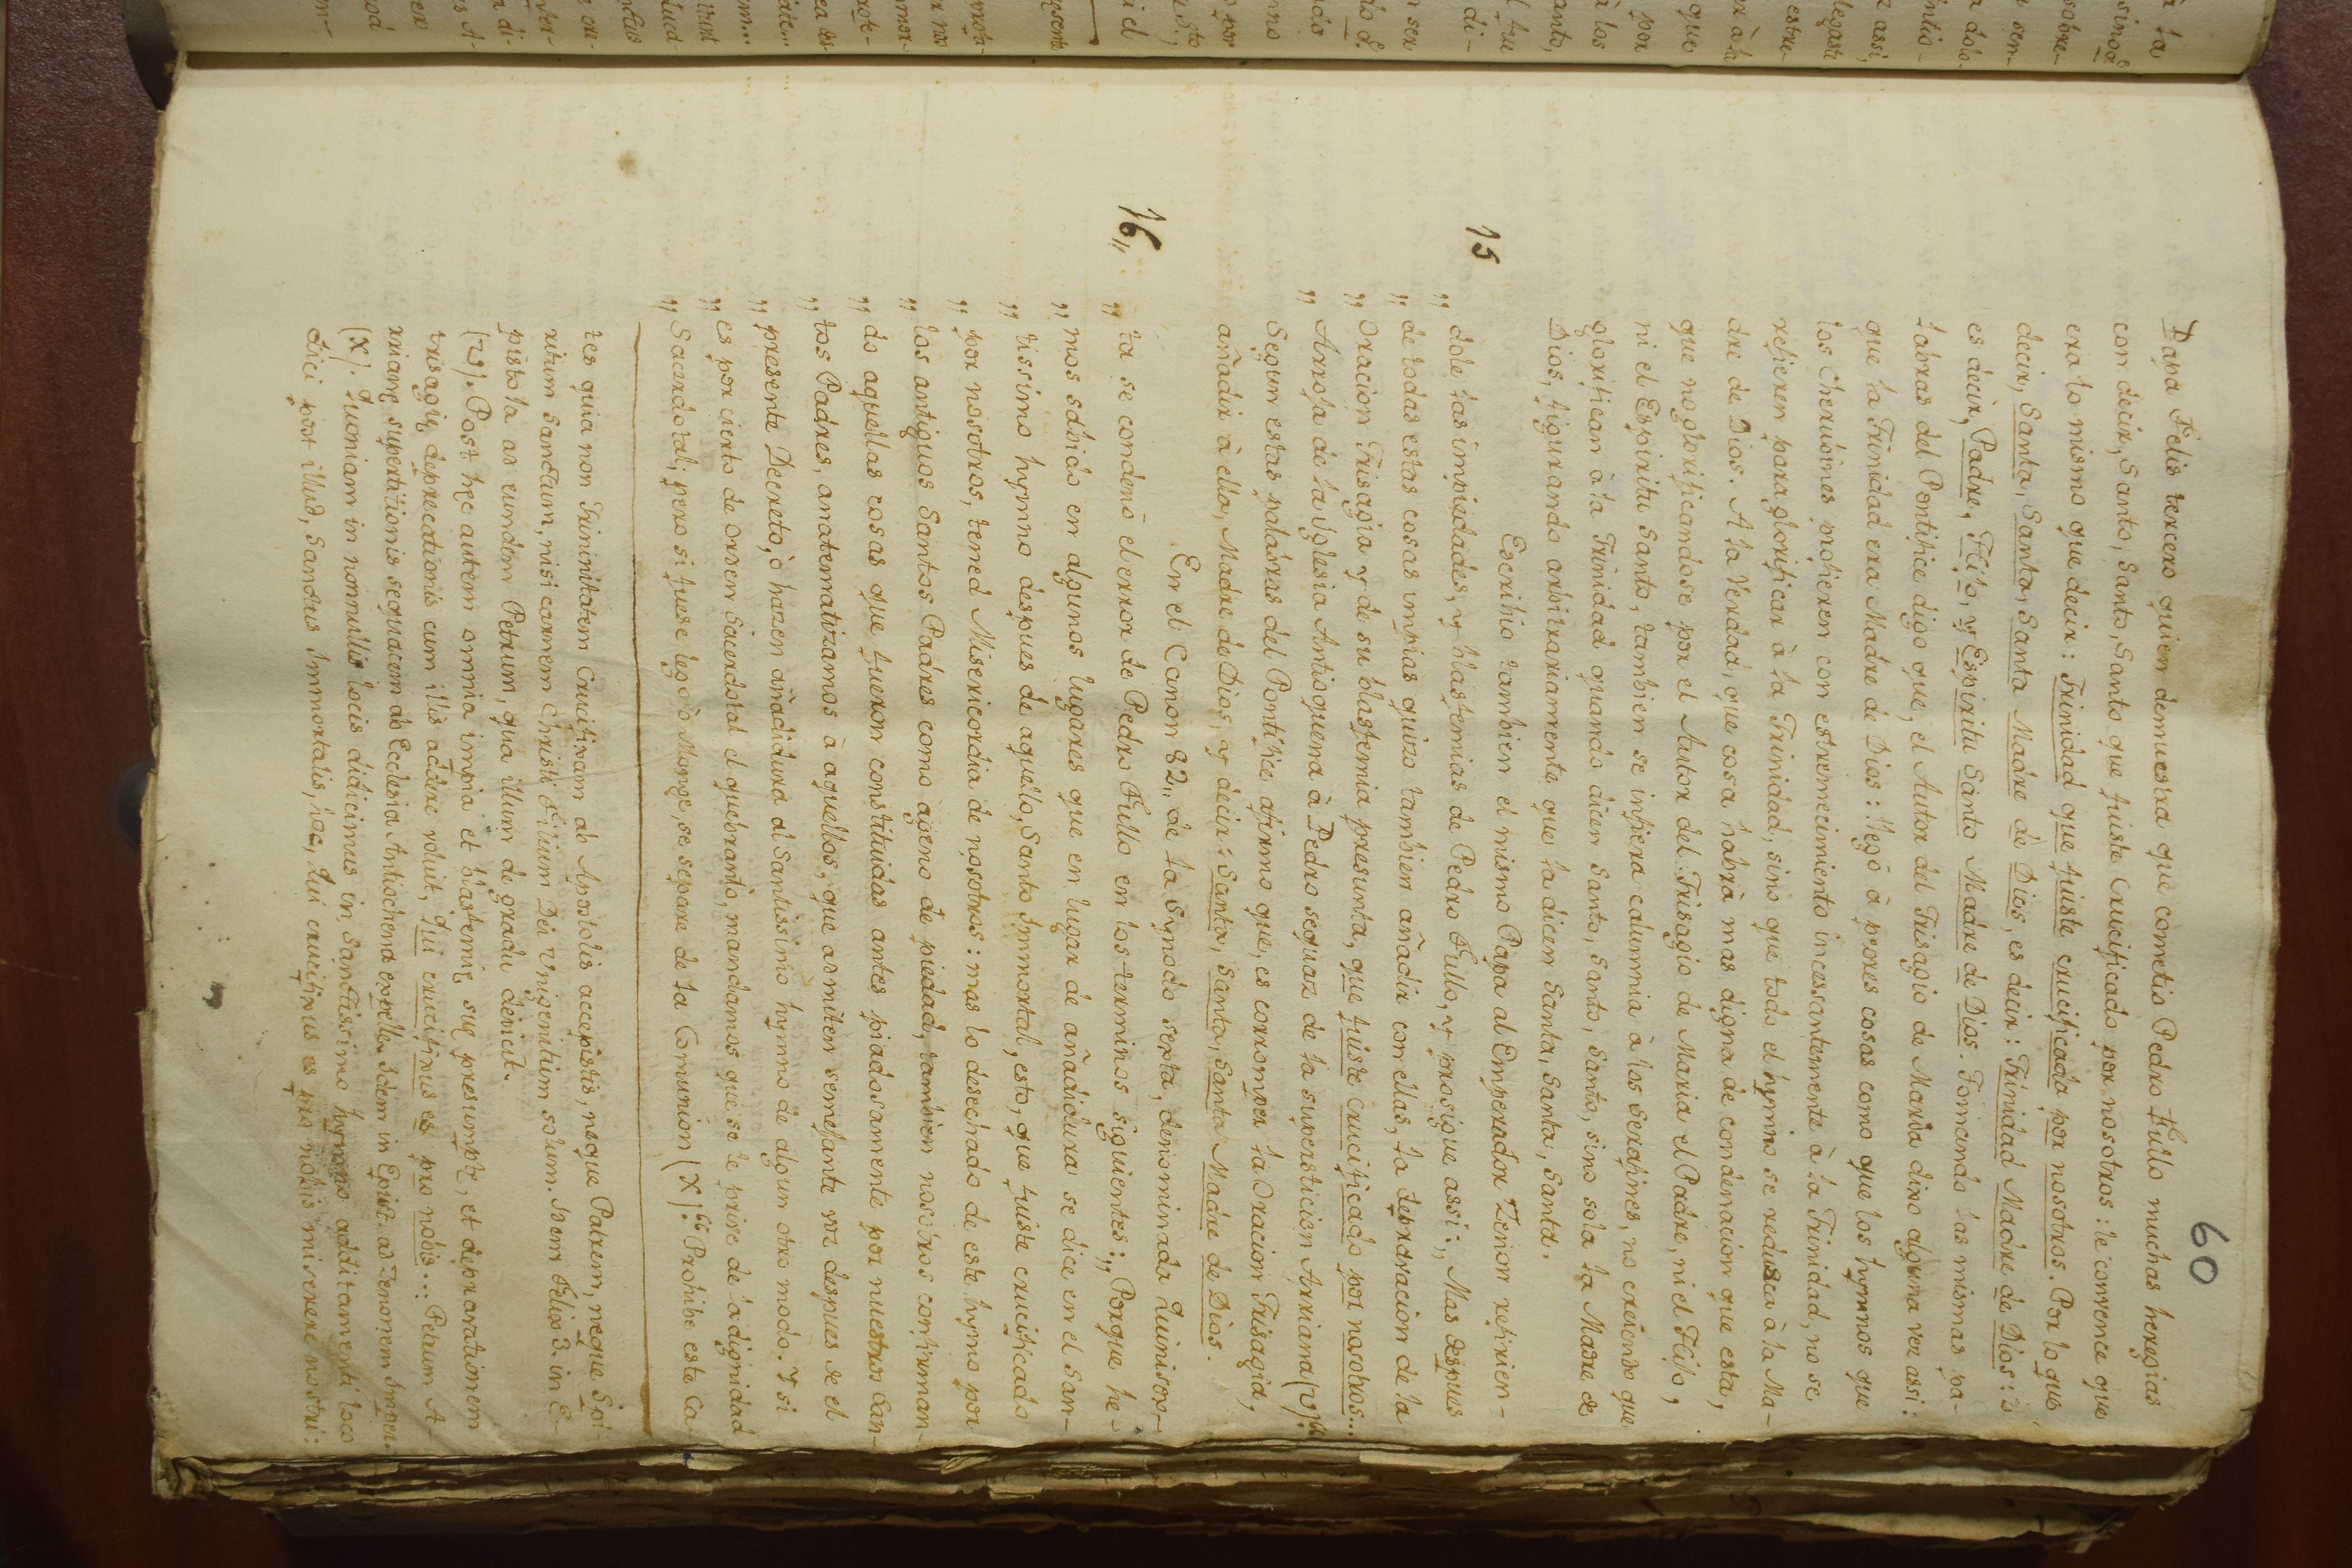 60
Papa Felis tercero quien demuestra que cometio Pedro Fullo muchas heregias
con decir, Santo, Santo, Santo que fuiste Crucificado por nosotros: le convence que
era lo mismo que decir: Trinidad que fuiste crucificada por nosotros. Por lo que
decir, Santa, Santa, Santa Madre de Dios, es decir: Trinidad Madre de Dios: ò
es decir, Padre, Hijo, y Espiritu Santo Madre de Dios. Tomando las mismas pa-
labras del Pontifice digo que, el Autor del Trisagio de Maria dixo alguna vez assi:
que la Trinidad era Madre de Dios: llegò à peores cosas como que los hymnos que
los Cherubines profieren con estremecimiento incessantemente à la Trinidad, no se
refieren para glorificar à la Trinidad, sino que todo el hymno se reduzca à la Ma-
dre de Dios. A la Verdad, que cosa habrà mas digna de condenacion que esta,
que no glorificandose por el Autor del Trisagio de Maria el Padre, ni el Hijo,
ni el Espiritu Santo, tambien se infiera calumnia à los Serafines, no creiendo que
glorifican à la Trinidad quando dicen Santo, Santo, Santo, sino sola la Madre de
Dios, figurando arbitrariamente que la dicen Santa, Santa, Santa.
15 Escribio tambien el mismo Papa al Emperador Zenon refirien-
„ dole las impiedades, y blasfemias de Pedro Fullo, y prosigue assi: „ Mas despues
„ de todas estas cosas impias quizo tambien añadir con ellas, la depravacion de la
„ Oracion Trisagia y de su blasfemia presunta, que fuiste crucificado por nosotros...
„ Arroja de la Yglesia Antioquena à Pedro sequaz de la supersticion Arriana (v).“
Segun estas palabras del Pontifice afirmo que, es corromper la Oracion Trisagia,
añadir à ella, Madre de Dios, y decir: Santa, Santa, Santa Madre de Dios.
16„ En el Canon 82„ de la Synodo sexta, denominada Quinisex-
„ ta se condenò el error de Pedro Fullo en los terminos siguientes: „ Porque he-
„ mos sabido en algunos lugares que en lugar de añadidura se dice en el San-
„ tissimo hymno despues de aquello, Santo Immortal, esto, que fuiste crucificado
„ por nosotros, tened Misericordia de nosotros: mas lo desechado de este hymno por
„ los antiguos Santos Padres como ageno de piedad, tambien nosotros confirman-
„ do aquellas cosas que fueron constituidas antes piadosamente por nuestros San-
„ tos Padres, anatematizamos à aquellos, que admiten semejante voz despues de el
„ presente Decreto, ò hazen añadidura al Santissimo hymno de algun otro modo. Y si
„ es por cierto de orden Sacerdotal el quebranto, mandamos que se le prive de la dignidad
„ Sacerdotal; pero si fuese lego ò Monge, se separe de la Comunion (x).“ Prohibe este Ca-
tes quia non Trinitatem Crucifixam ab Apostolis accepistis, neque Patrem, neque Spi-
ritum Sanctum, nisi carnem Christi Filium Dei Vnigenitum solum. Idem Felix 3. in E-
pistola ad eundem Petrum, qua illum de gradu dejicit.
(v). Post hęc autem omnia impia et blasfemię suę presumptę, et depravationem
trisagię deprecationis cum illis addere voluit, Qui crucifixus es pro nobis... Petrum A-
rrianę superstitionis sequacem ab Ecclesia Antiochena expelle. Idem in Epist. ad Zenonem Imper.
(x). Quoniam in nonnullis locis didicimus in Sanctissimo hymno additamenti loco
dici post illud, Sanctus Immortalis, hoc, Qui crucifixus es pro nobis miserere nostri: